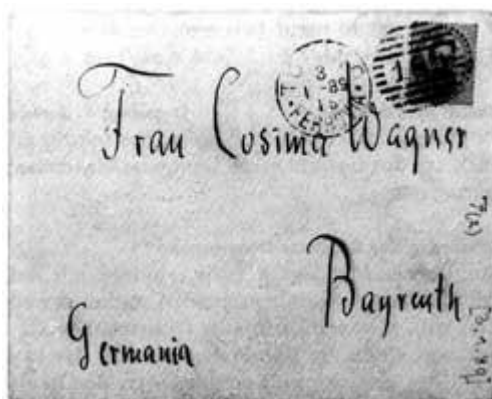 Frau Cosima Wagner
Bayreuth
Germania